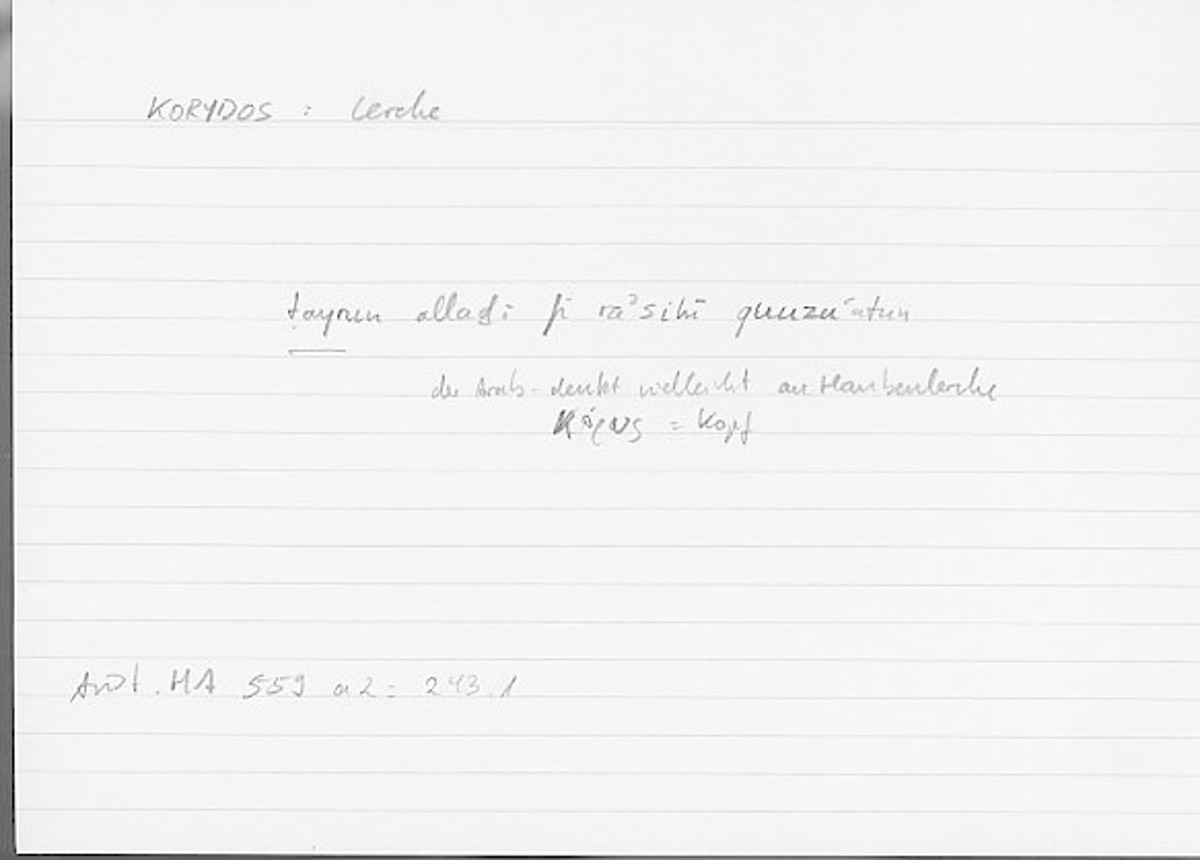 KORYDOS : Lerche
ṭayrun allaḏī fī raʾsihī qunzuʿatun
der Arab. denkt vielleicht an Haubenlerche
= Kopf
Arist. HA 559 a2 = 243.1